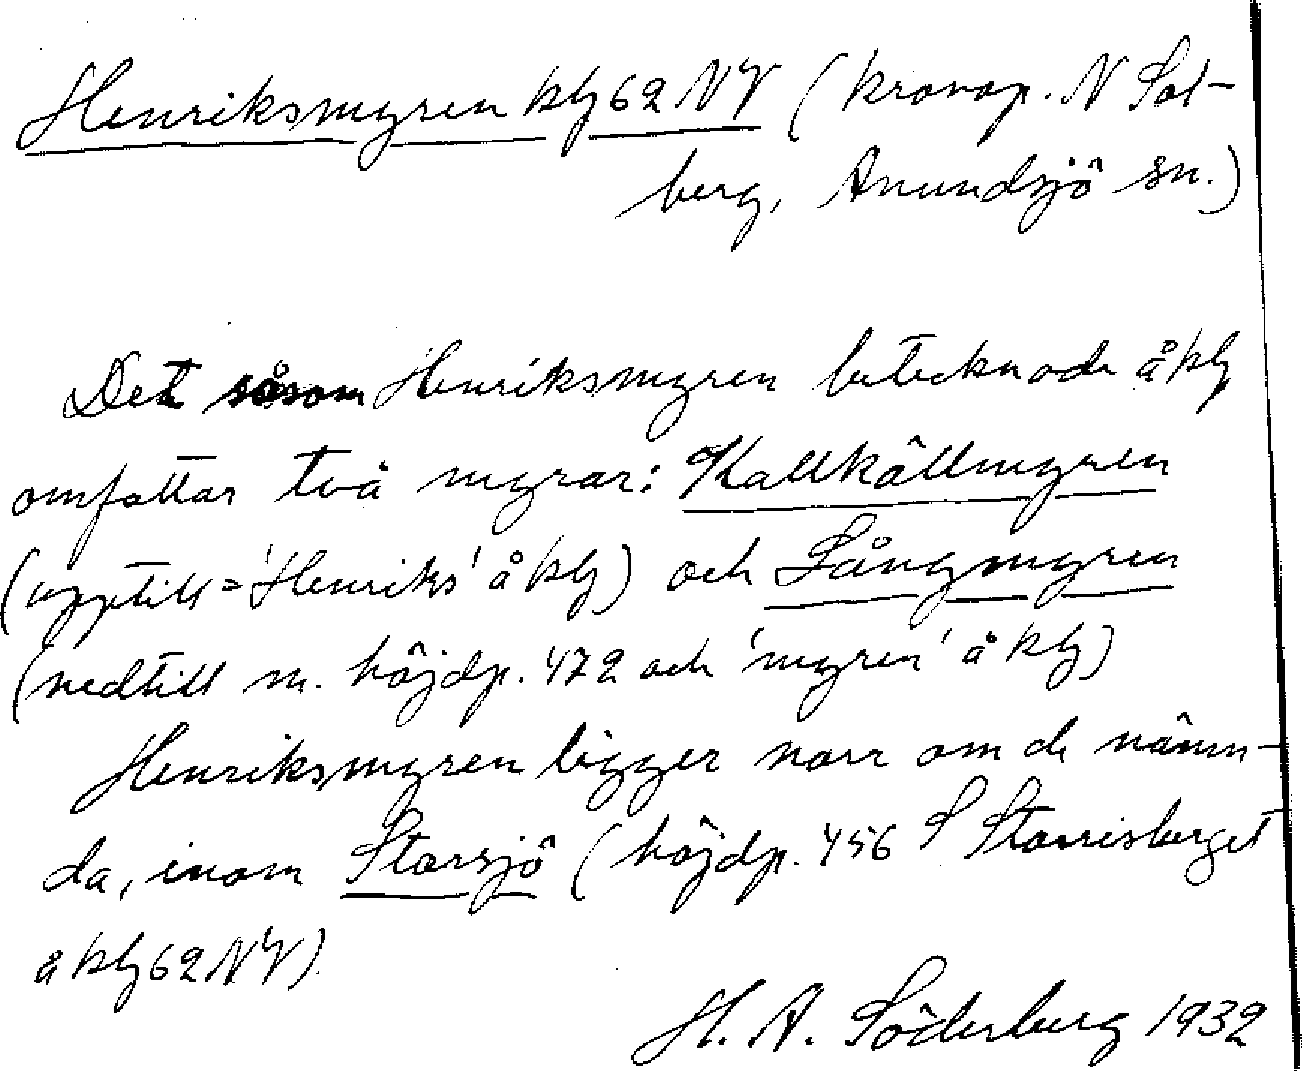 Henriksmyren kbl 62 NV (kronop. N Sol-
berg, Anundsjö sn.)
Det såsom Henriksmyren betecknade å kbl
omfattar två myrar: Kallkällmyren
(upptill = 'Henriks' å kbl) och Långmyren
(nedtill m. höjdp. 472 och 'myren' å kbl)
Henriksmyren ligger norr om de nämn-
da, inom Storsjö (höjdp. 456 S Storrisberget
å kbl 62 NV).
H. A. Söderberg 1932